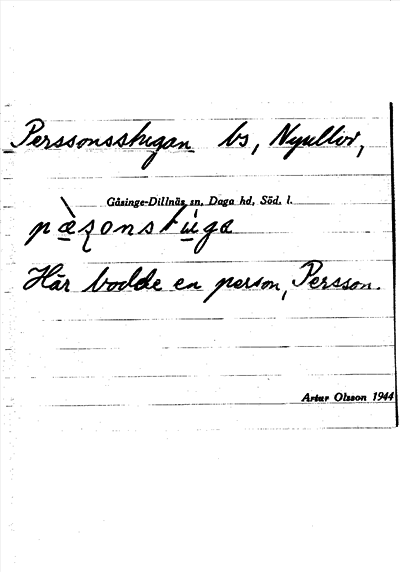 Perssonsstugan bs, Nyellior,
Gåsinge-Dillnäs sn. Daga hd, Söd. l.
pæ̀ʂonstu̇ga
Här bodde en person, Persson.
Artur Olsson 1944